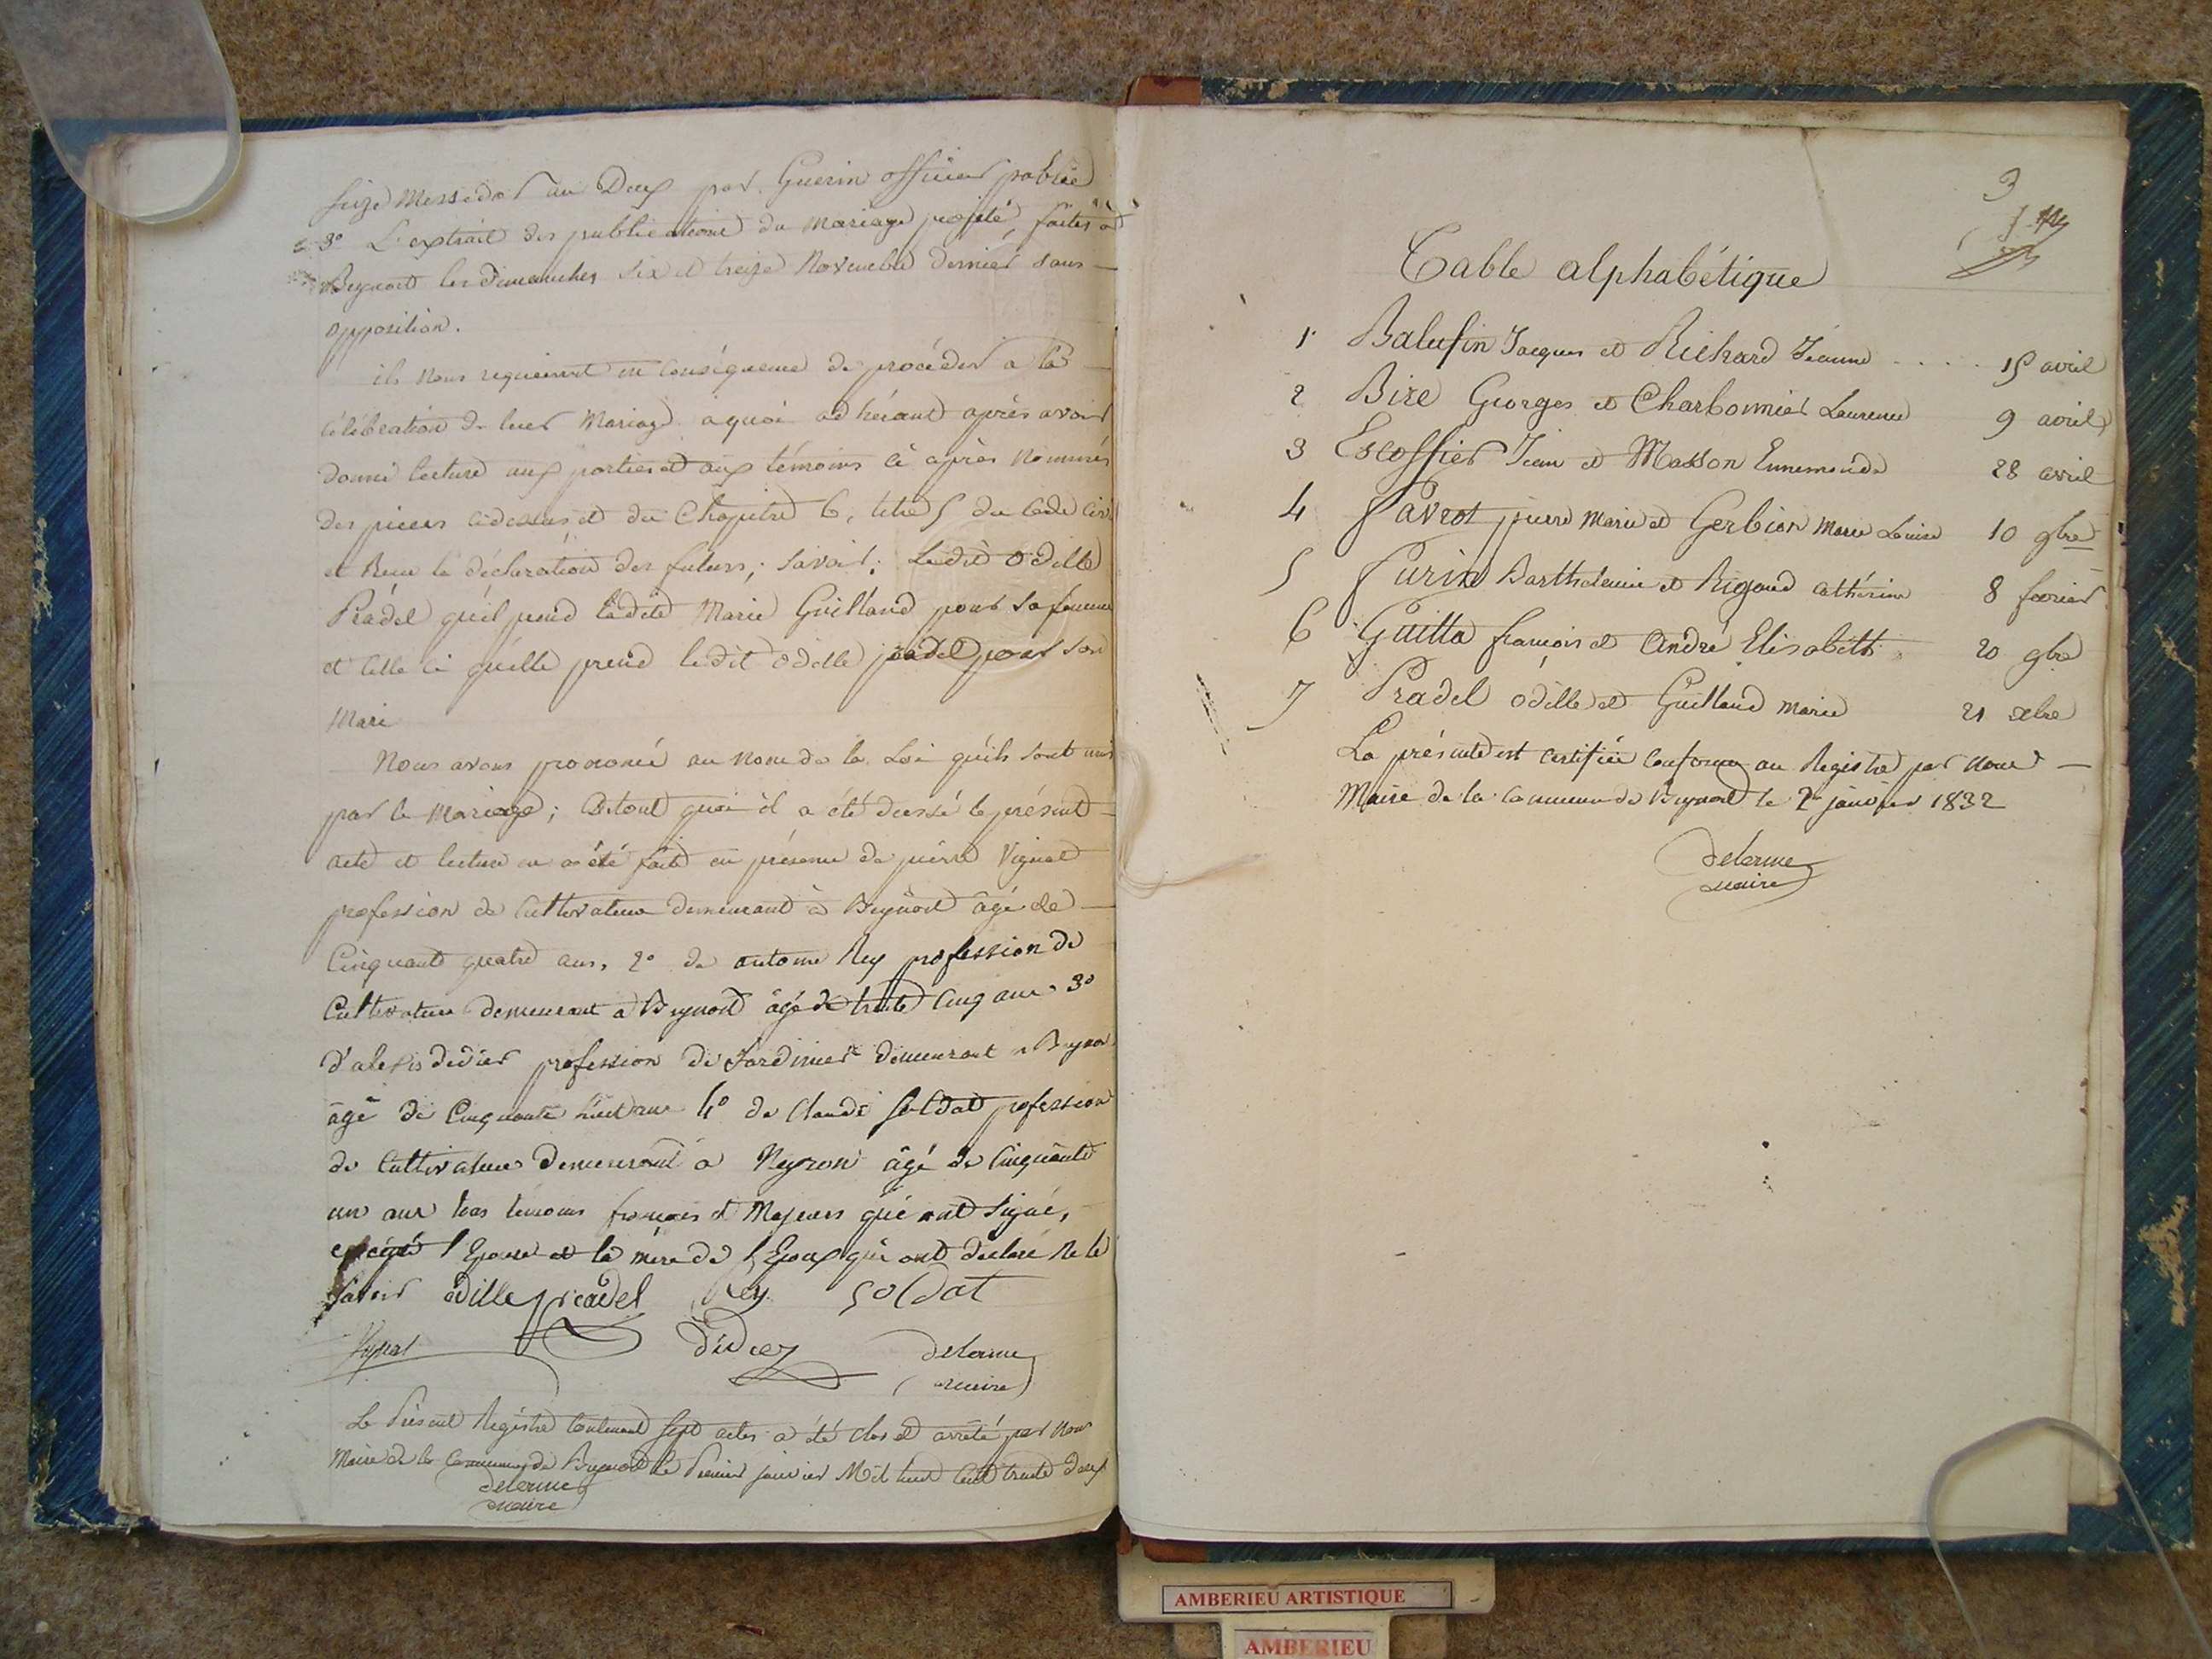 seize Messidor an Deux par Guerin officier public
3º L'extrait des publications du mariage projeté, faites à
Beynost les dimanches six et treize Novembre dernier sans
opposition.
ils nous requierent en conséquence de procéder a la
célébration de leur Mariage aquoi adhérant après avoir
donné lecture aux parties et aux témoins ci après Nommés
des pieces cidessus et du Chapitre 6, titre 5 du Code civ.
et Recu la déclaration des futurs; Savoir; Ledit Odille
Pradel qu'il prend ladite Marie Guilland pour sa femme
et celle ci qu'elle prend ledit Odille pradel pour son
Mari
Nous avons prononcé au nom de la Loi qu'ils sont unis
par le Mariage; De tout quoi il a été dressé le présent
acte et lecture en a été faite en présence de pierre Vignat
profession de Cultivateur demeurant à Beynost âgé de
Cinquante quatre ans, 2º de antoine Rey profession de
Cultivateur demeurant a Beynost âgé de trente Cinq ans 3º
d'alexis didier profession de Jardinier demeurant a Beynos
âgé de Cinquante huit ans 4º de Claude Soldat profession
de Cultivateur demeurant a Neyron âgé de Cinquante
un ans tous temoins français et Majeurs qui ont signé,
excepté l'Epouse et la mère de l'Epoux qui ont déclaré Ne le
savoir odille pradel Rey soldat
Vignat Didier delorme
maire
Le Présent Registre Contenant sept actes a été clos et arrêté par Nous
Maire de la Commune de Beynost le Premier janvier Mil huit Cent trente deux
delorme
maire
3
Table alphabétique
1 Balufin Jacques et Richard Jeanne .... 15 avril
2 Bire Georges et Charbonnier Laurence 9 avril
3 Escoffier Jean et Masson Ennemonde 28 avril
4 Favrot pierre Marie et Gerbion Marie Louise 10 9bre
5 Furin Barthelemie et Rigaud cathérine 8 fevrier
6 Guitta françois et André Elisabeth 20 9bre
7 Pradel Odille et Guilland Marie 21 xbre
La présente est certifiée conforme au Registre par Nous
Maire de la Commune de Beynost le 2 janvier 1832
delorme
maire
AMBERIEU ARTISTIQUE
AMBERIEU